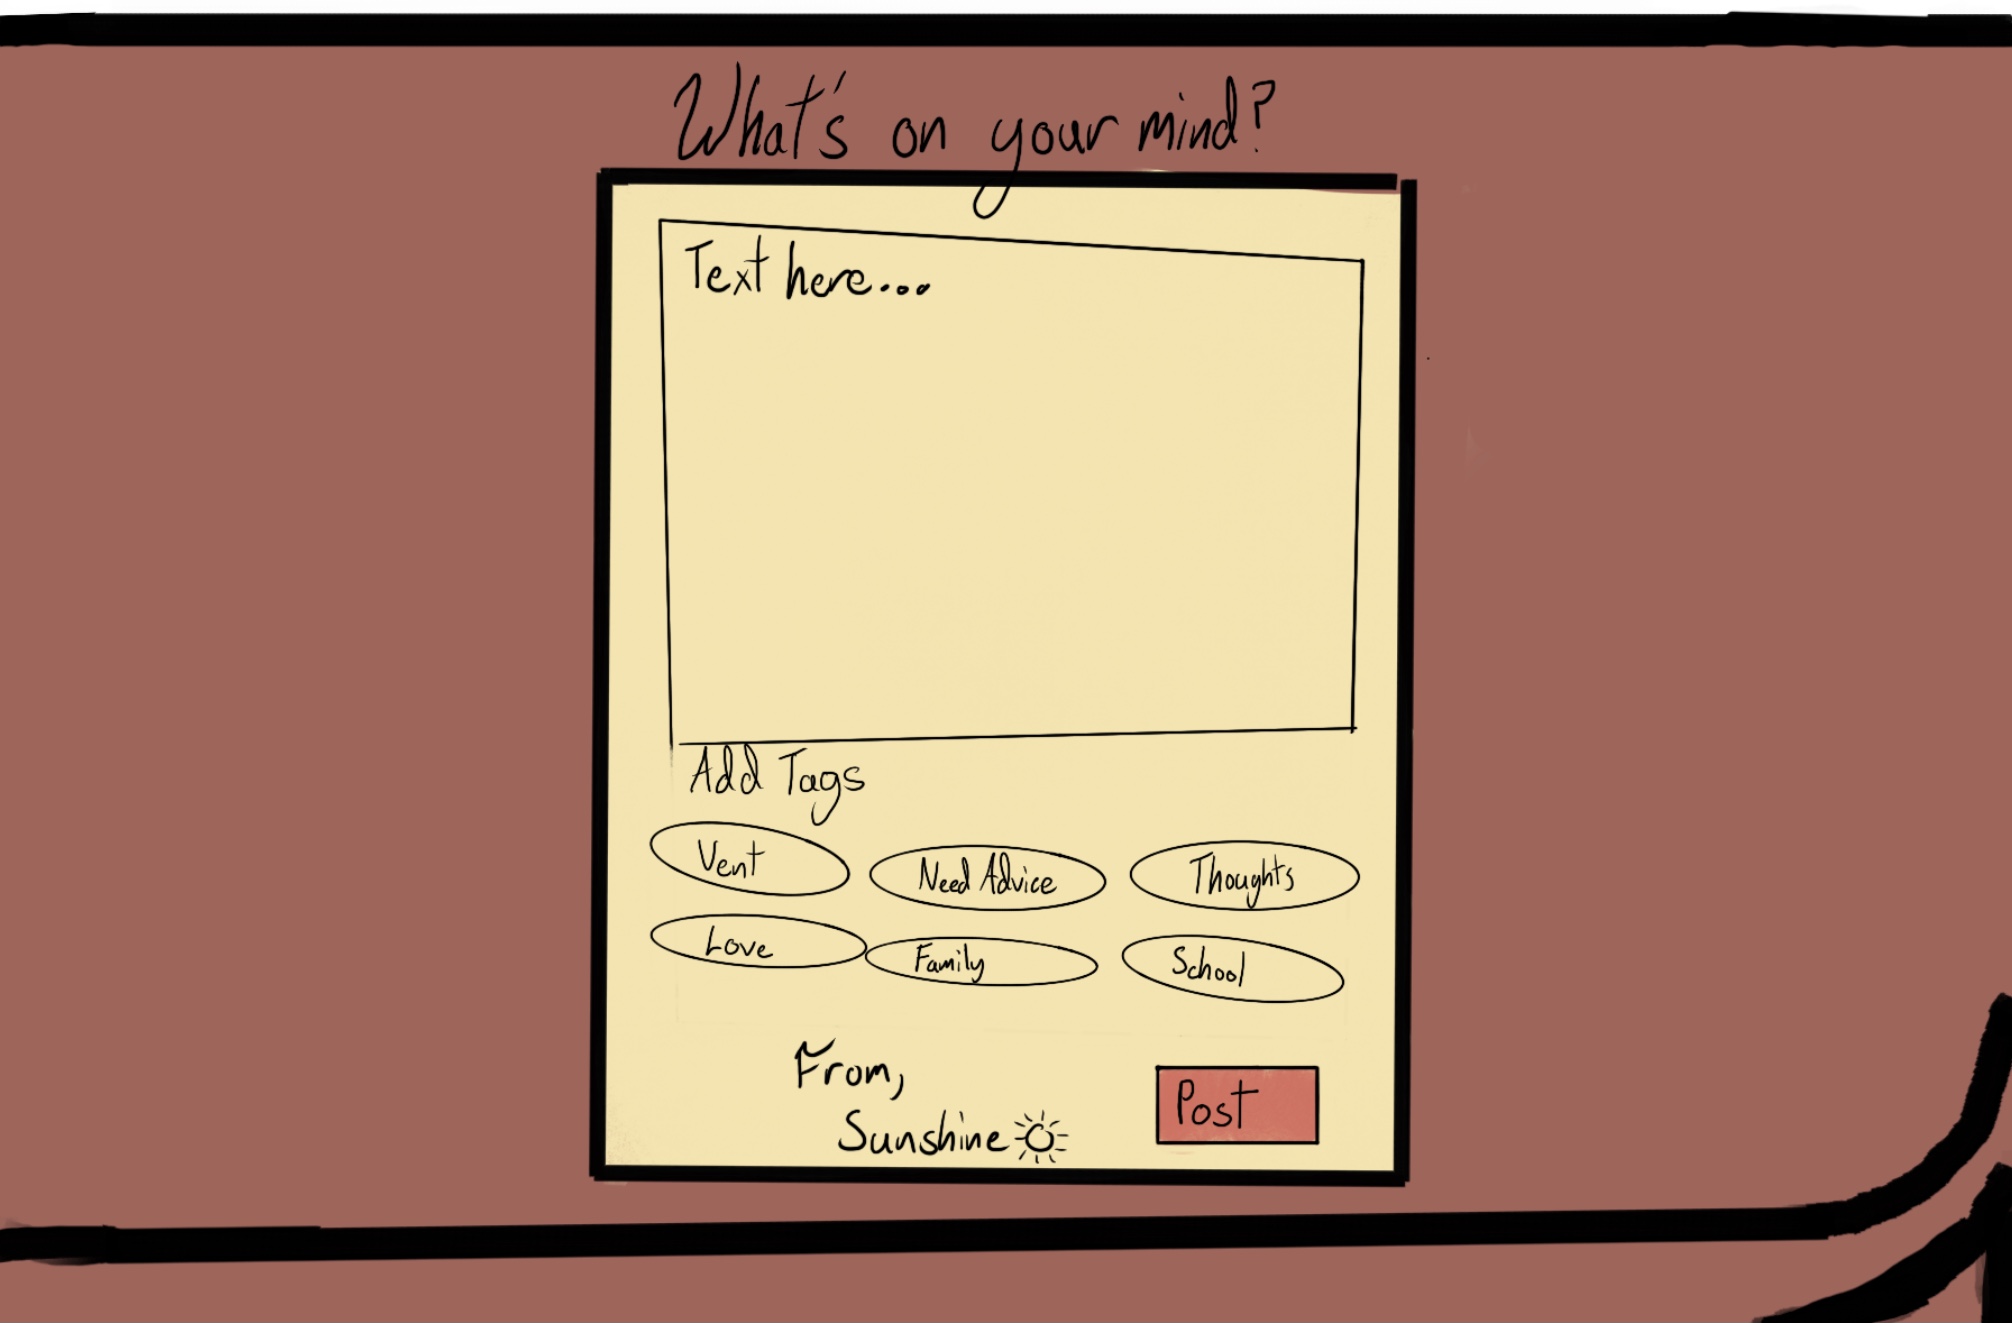 What's on your mind?
Text here...
Add Tags
Vent Need Advice Thoughts
Love Family School
From,
Sunshine
Post